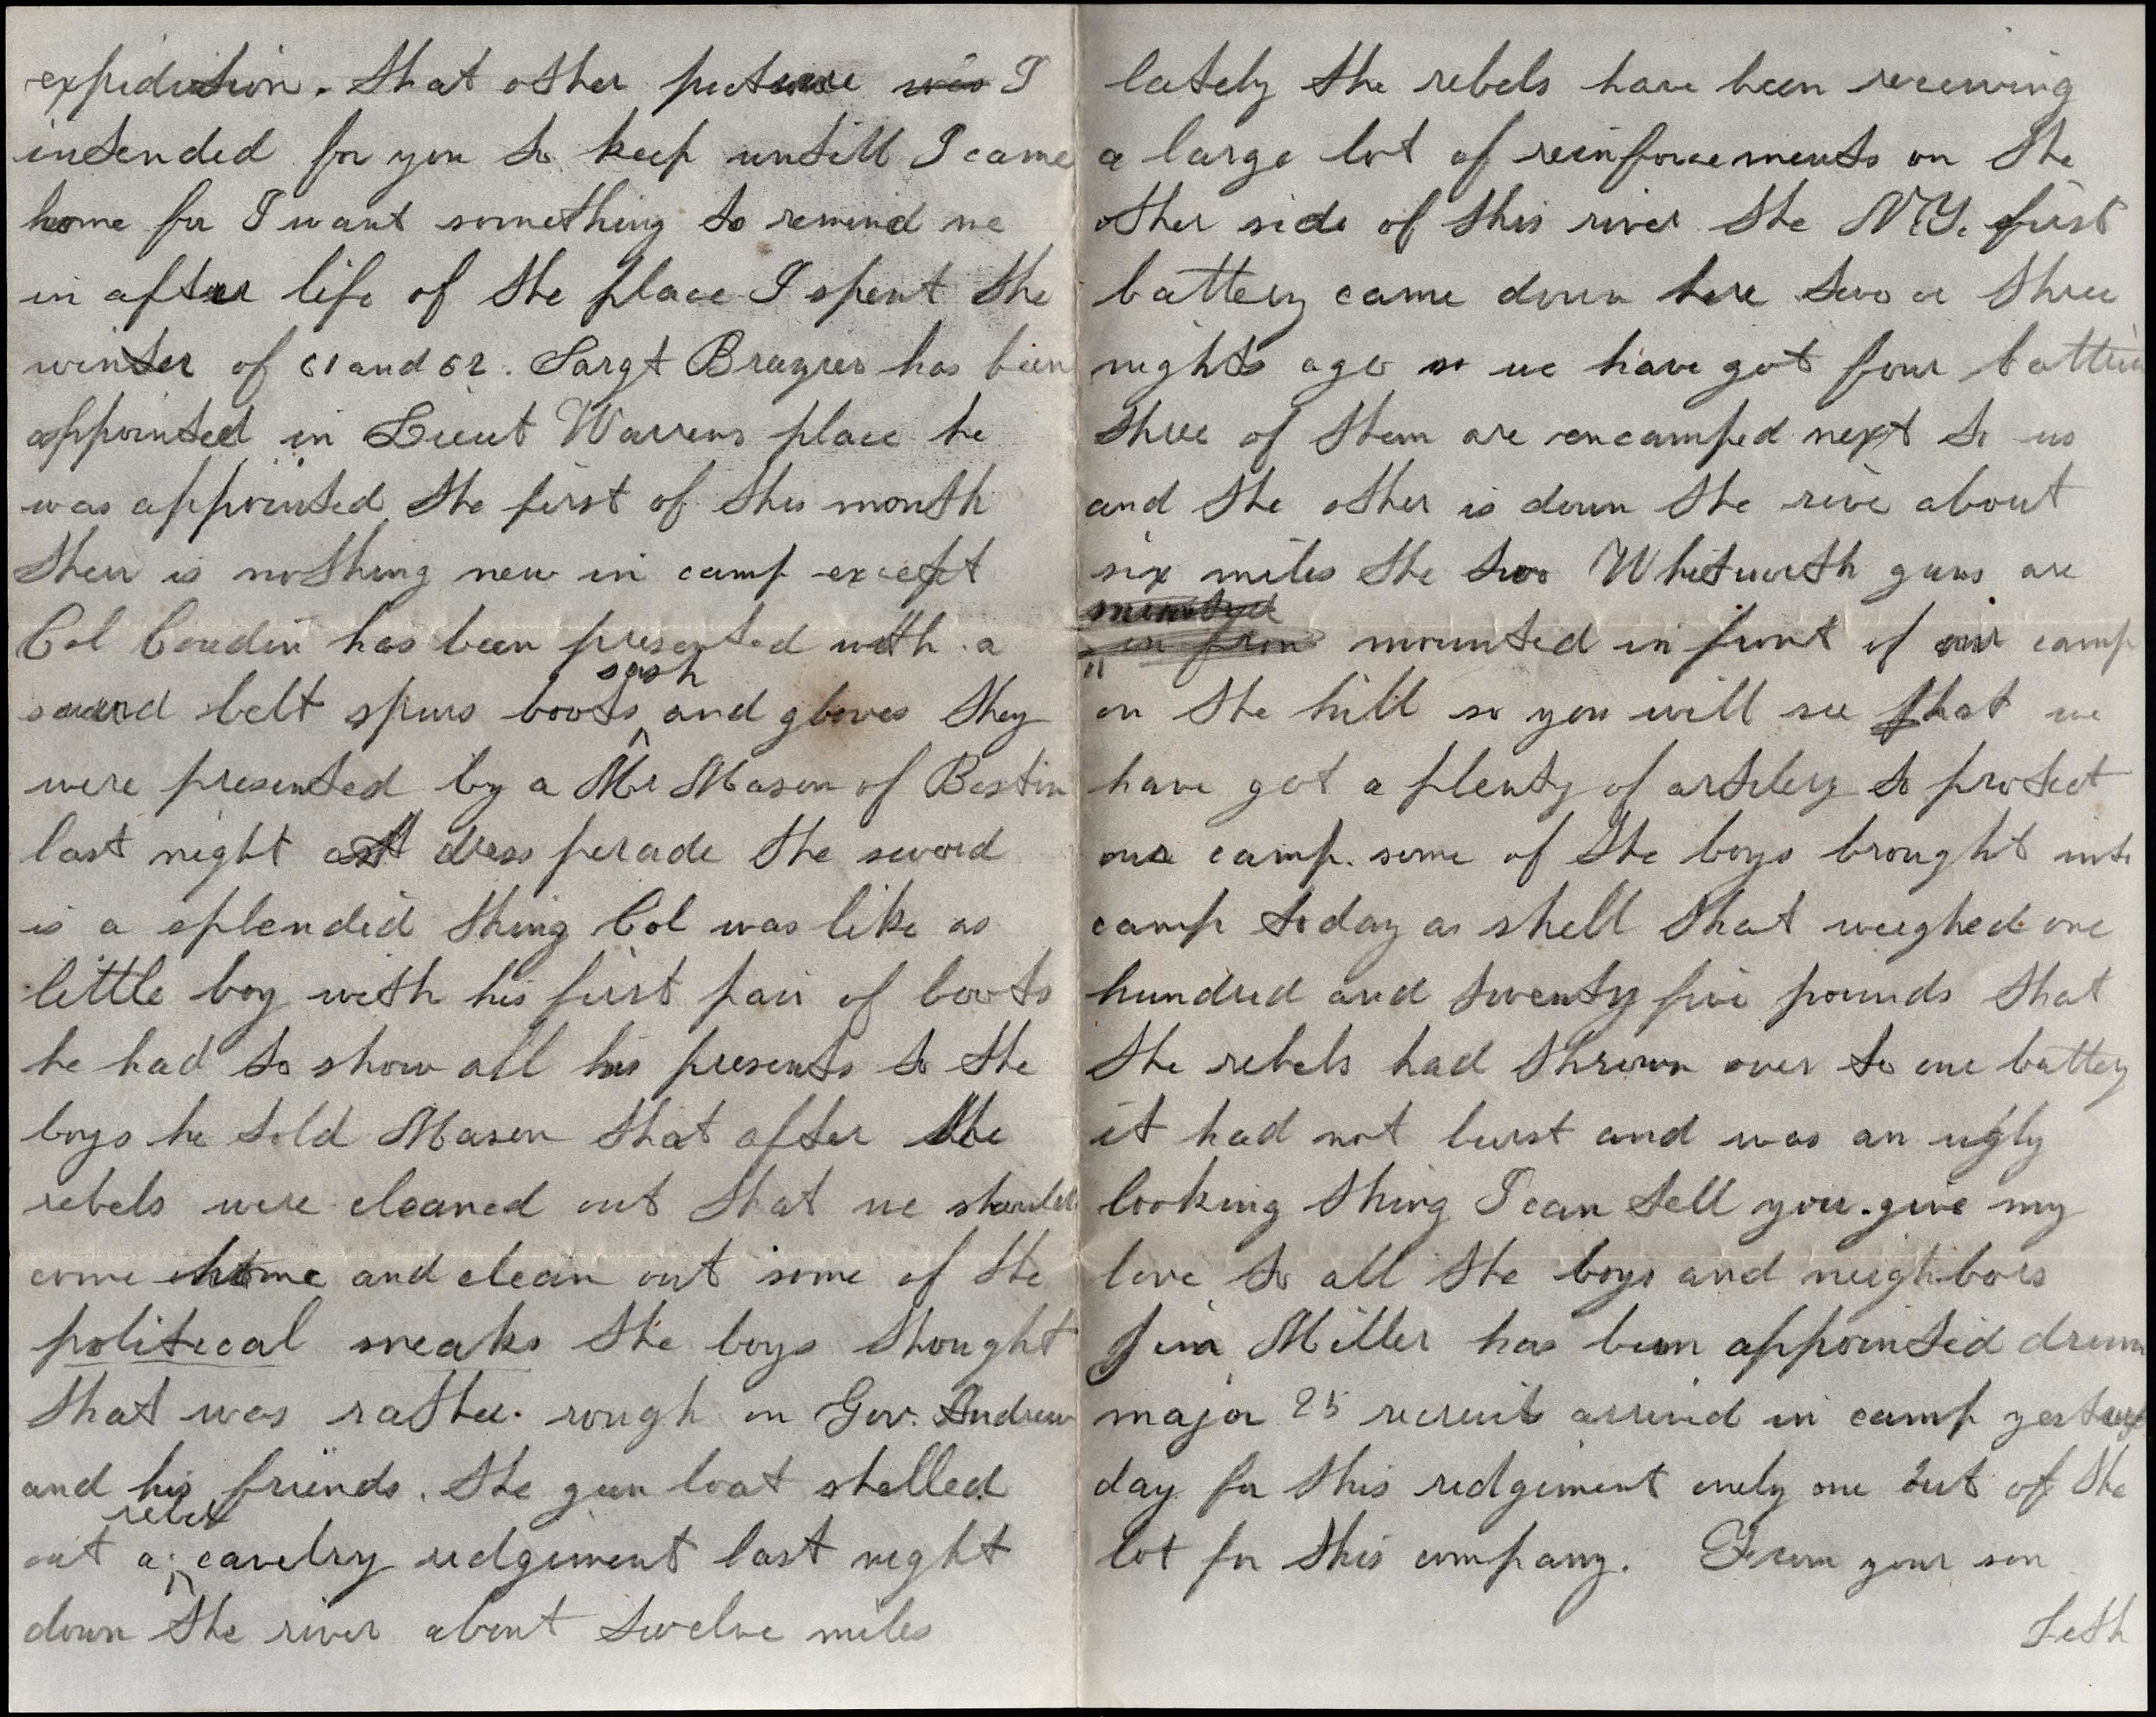 expidition. that other picture was I
intended for you to keep untill I came
home for I want something to remind me
in after life of the place I spent the
winter of 61 and 62. Sargt Brazier has been
appointed in Lieut Warrens place he
was appointed the first of this month
ther is nothing new in camp except
Col Coudin has been presented with a
sash
sword belt spurs boots ^ and gloves they
were presented by a Mr Mason of Bostin
last night at dress perade the sword
is a splendid thing Col was like as
little boy with his first pair of boots
he had to show all his presents to the
boys he told Mason that after the
rebels were cleaned out that we should
come home and clean out some of the
politecal sneaks the boys thought
that was rather rough on Gov. Andrew
and his friends. the gun boat shelled
rebel
out a ^ cavelry redgiment last night
down the river about twelve miles
lately the rebels have been receiving
a large lot of reinforcements on the
other side of this river the N.Y. first
battery came down here two or three
nights ago so we have got four batteries
three of them are encamped next to us
and the other is down the rive about
six miles the two Whitworth guns are
mounted
in fron mounted in front of our camp
on the hill so you will see that we
have got a plenty of artilery to protect
our camp. some of the boys brought into
camp today as shell that weighed one
hundred and twenty five pounds that
the rebels had thrown over to our battery
it had not burst and was an ugly
looking thing I can tell you. give my
love to all the boys and neighbors
Jim Miller has been appointed drum
major 25 recruits arrived in camp yester
day for this redgiment only one out of the
lot for this company. From your son
Seth